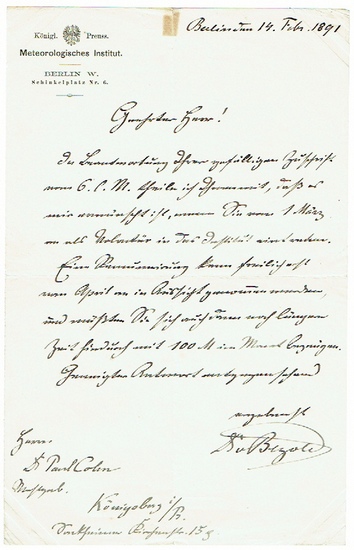 Königl. Preuss.
Meteorologisches Institut.
BERLIN W.
Schinkelplatz Nr. 6.
Berlin den 14. Febr. 1891
Geehrter Herr!
In Beantwortung Ihrer gefälligen Zuschrift
vom 6. l. M. theile ich Ihnen mit, daß es
mir erwünscht ist, wenn Sie vom 1 März
an als Volontär in das Institut eintreten.
Eine Remunerirung kann freilich erst
vom April an in Aussicht genommen werden,
und müßten Sie sich auch dann noch längere
Zeit hindurch mit 100 M im Monat begnügen.
Geneigter Antwort entgegensehend
ergebenst
Dr v Bezold
Herrn
Dr Paul Cohn
Königsberg i/P.